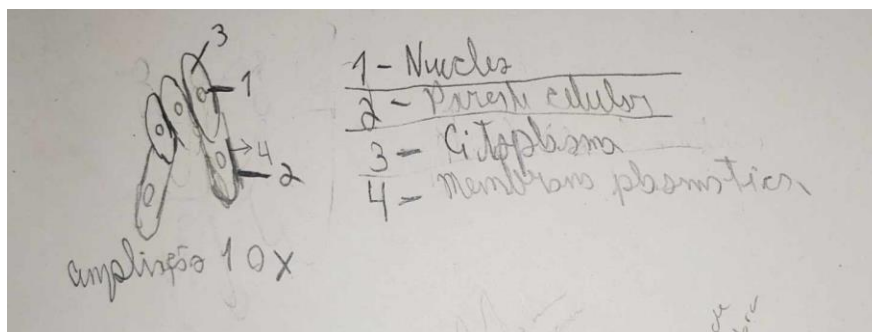 3
1
4
2
ampliação 10x
1 - Nucleo
2 - Parede celular
3 - Citoplasma
4 - membrana plasmatica